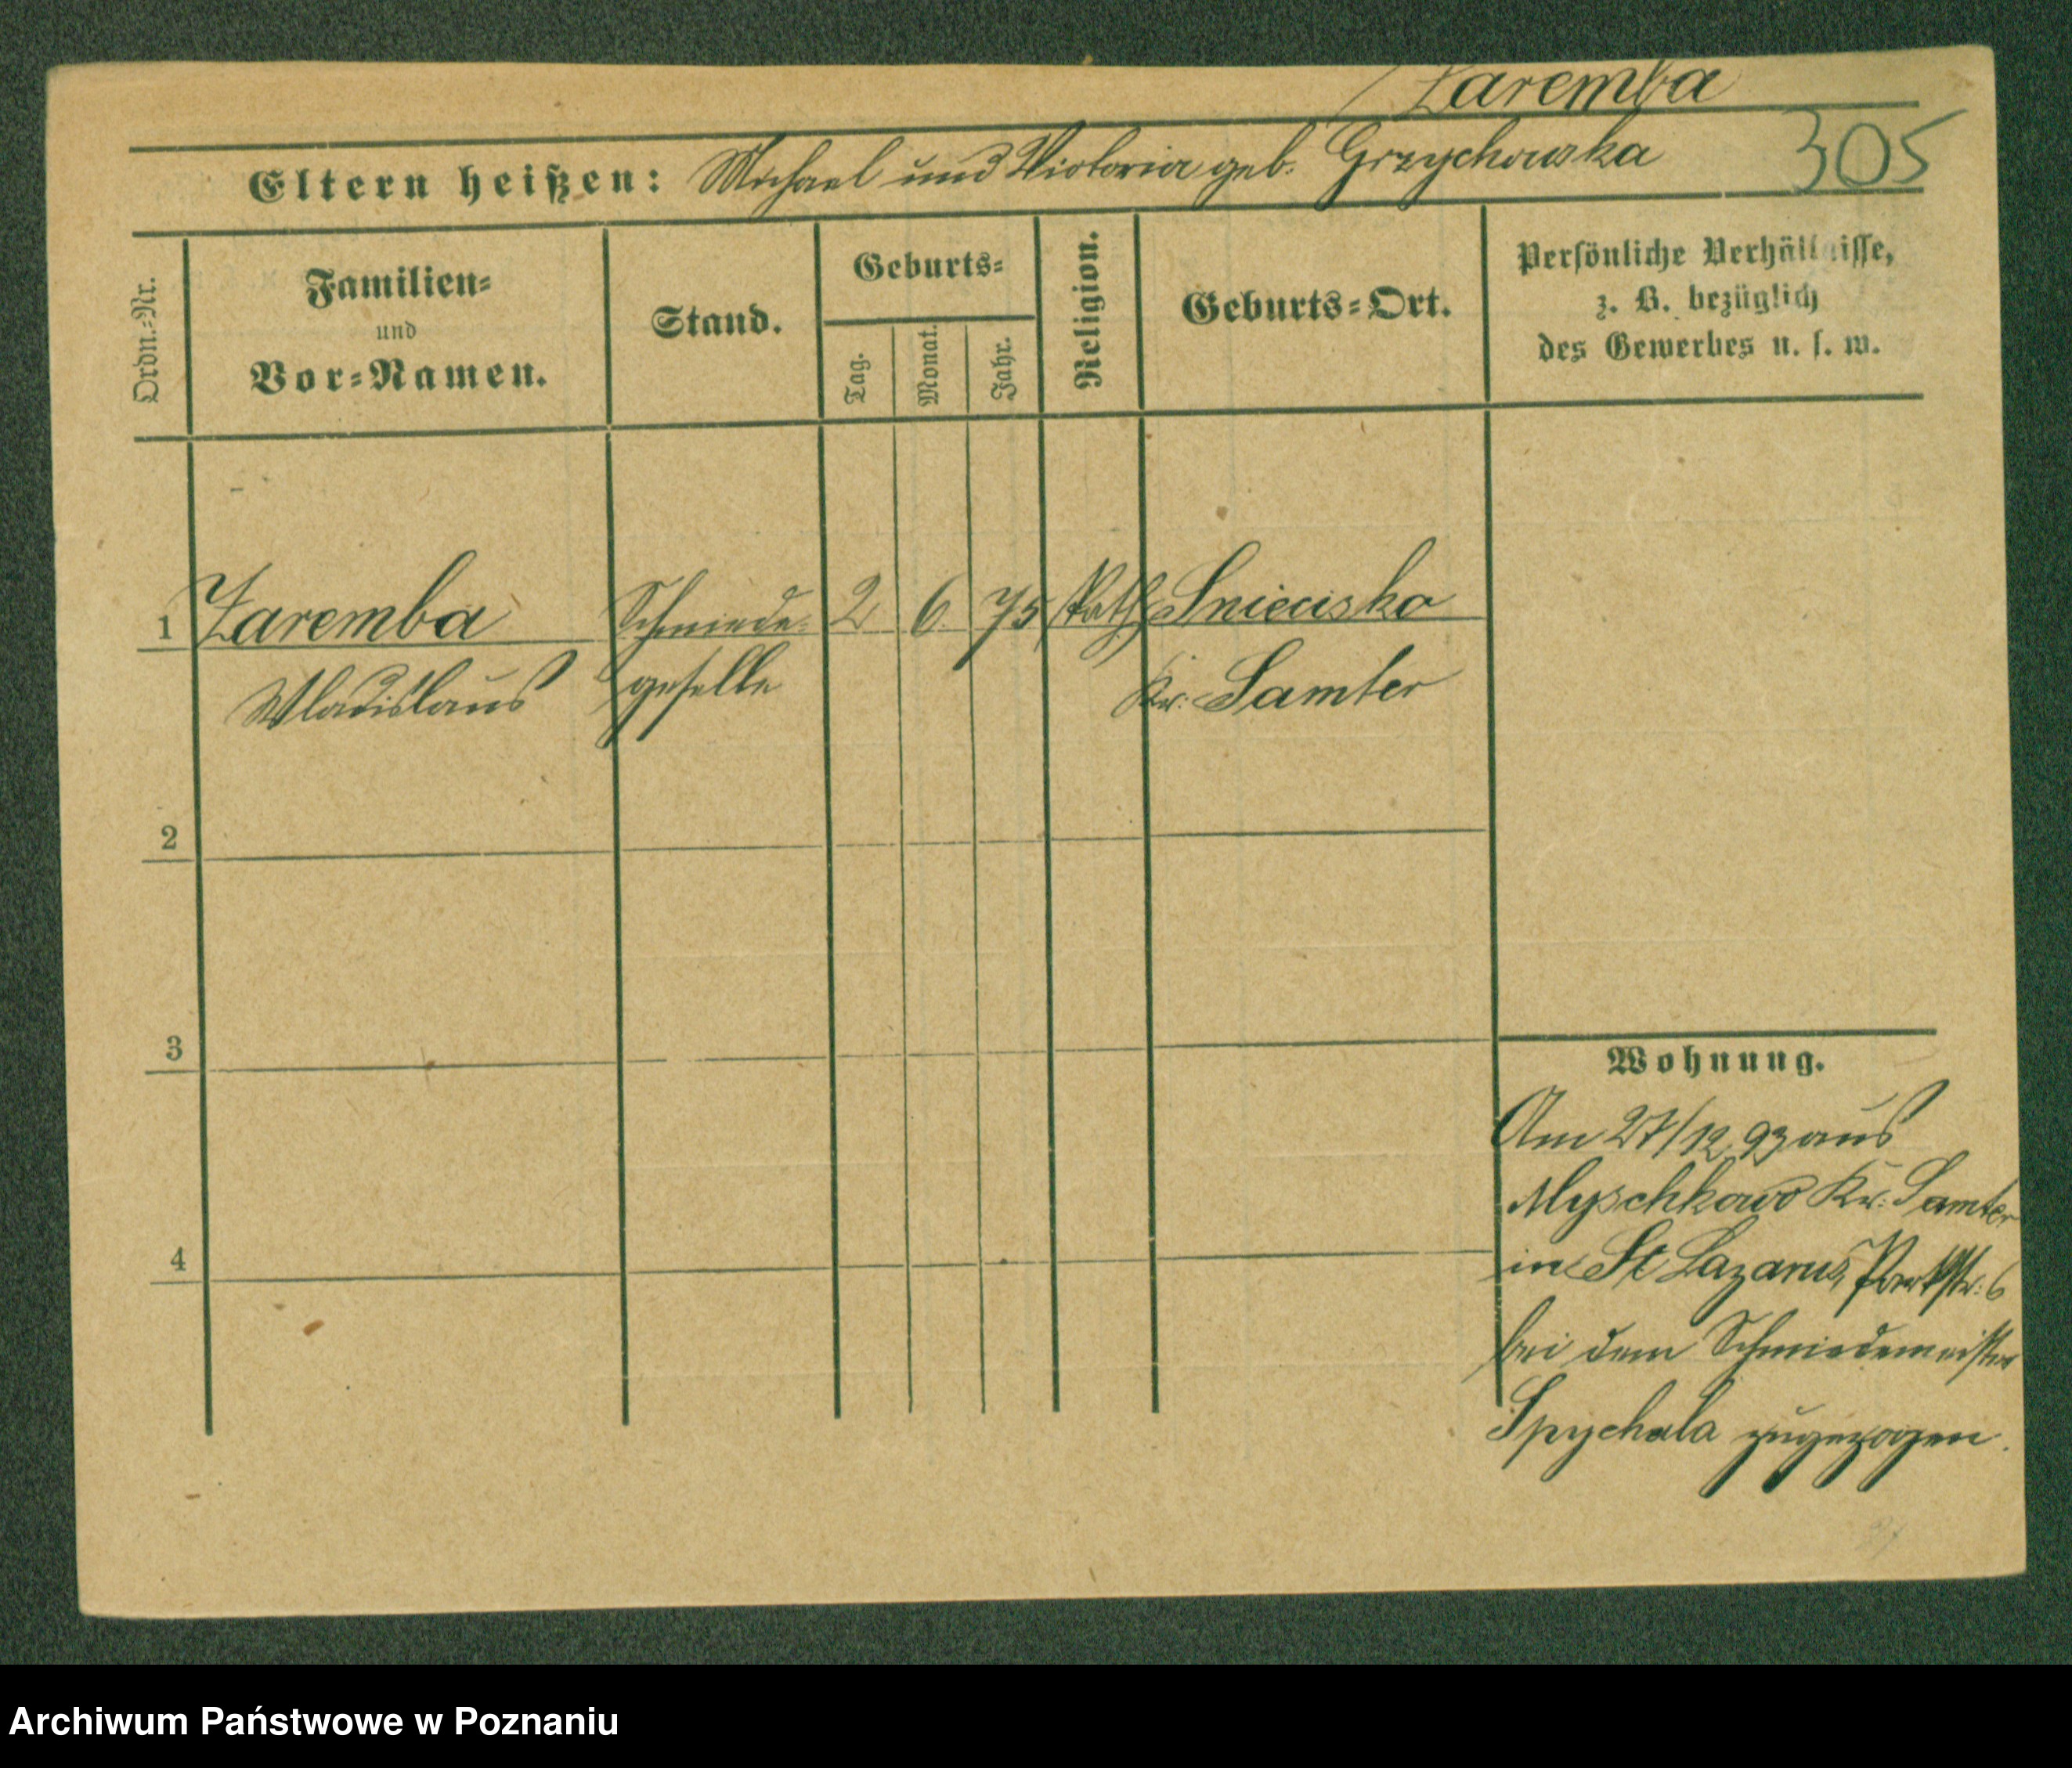 Zaremba
305
Eltern heißen: Michael und Victoria geb. Grzychowska
Ordn.-Nr.
Familien-
und
Vor-Namen.
Stand.
Geburts-
Tag.
Monat.
Jahr.
Religion.
Geburts-Ort.
Persönliche Verhältnisse,
z. B. bezüglich
des Gewerbes u. s. w.
1 Zaremba Schmiede- 2 6. 75 kath Sniecisko
Wladislaus geselle Kr. Samter
2
3
4
Wohnung.
Am 27/12 93 aus
Myschkowo Kr. Samter
in St Lazarus, Parkstr. 6
bei dem Schmiedemeister
Spychala zugezogen.
Archiwum Państwowe w Poznaniu